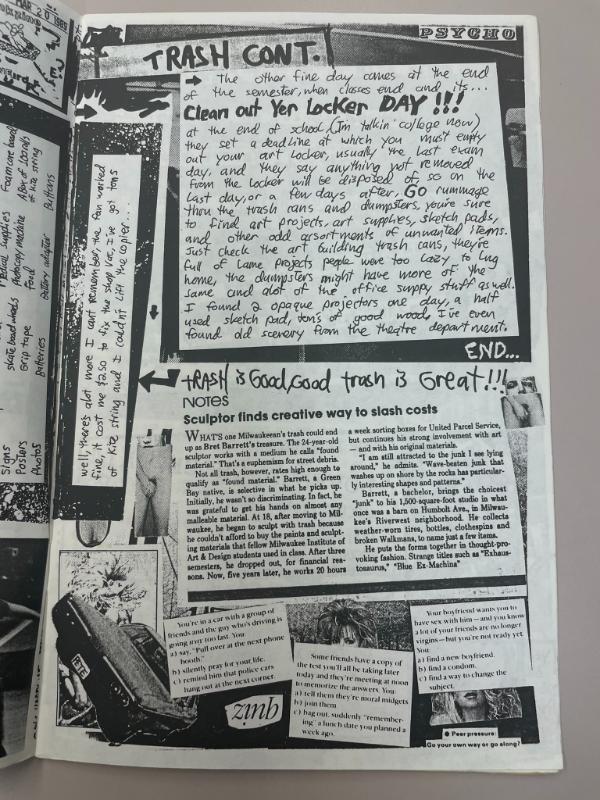 MAR 20 1985
PSYCHO
TRASH CONT.
→ The other fine day comes at the end
of the semester, when classes end and its...
Clean out Yer Locker DAY !!!
at the end of school, (Im talkin' college now)
they set a deadline at which you must empty
out your art locker, usually the last exam
day, and they say anything not removed
from the locker will be disposed of, so on the
last day, or a few days after, GO rummage
thru the trash cans and dumpsters, you're sure
to find art projects, art supplies, sketch pads,
and other odd assortments of unwanted items.
Just check the art building trash cans, they're
full of Lame projects people were too lazy to lug
home, the dumpsters might have more of the
same and alot of the office suppy stuff as well.
I found 2 opaque projectors one day, a half
used sketch pad, ton's of good wood, I've even
found old scenery from the theatre department.
END...
well, there's alot more I cant remember, the fan worked
fine, it cost me $2.50 to fix the shop vac, I've got tons
of kite string and I couldn't lift the copier...
Signs
Posters
Photos
skate board wheels
Grip tape
Batteries
Medical supplies
Photocopy machine
Food
Battery adapter
Foam core board
A box of
of kite string
Buttons
TRASH is Good, Good trash is Great!!!
NOTES
Sculptor finds creative way to slash costs
WHAT'S one Milwaukeean's trash could end
up as Bret Barrett's treasure. The 24-year-old
sculptor works with a medium he calls "found
material." That's a euphemism for street debris.
Not all trash, however, rates high enough to
qualify as "found material." Barrett, a Green
Bay native, is selective in what he picks up.
Initially, he wasn't so discriminating. In fact, he
was grateful to get his hands on almost any
malleable material. At 18, after moving to Mil-
waukee, he began to sculpt with trash because
he couldn't afford to buy the paints and sculpt-
ing materials that fellow Milwaukee Institute of
Art & Design students used in class. After three
semesters, he dropped out, for financial rea-
sons. Now, five years later, he works 20 hours
a week sorting boxes for United Parcel Service,
but continues his strong involvement with art
— and with his original materials.
"I am still attracted to the junk I see lying
around," he admits. "Wave-beaten junk that
washes up on shore by the rocks has particular-
ly interesting shapes and patterns."
Barrett, a bachelor, brings the choicest
"junk" to his 1,500-square-foot studio in what
once was a barn on Humbolt Ave., in Milwau-
kee's Riverwest neighborhood. He collects
weather-worn tires, bottles, clothespins and
broken Walkmans, to name just a few items.
He puts the forms together in thought-pro-
voking fashion. Strange titles such as "Exhaus-
tosaurus," "Blue Ex-Machina"
You're in a car with a group of
friends and the guy who's driving is
going way too fast. You
a) say, "Pull over at the next phone
booth."
b) silently pray for your life.
c) remind him that police cars
hang out at the next corner.
quiz
Some friends have a copy of
the test you'll all be taking later
today and they're meeting at noon
to memorize the answers. You:
a) tell them they're moral midgets
b) join them.
c) bag out, suddenly "remember-
ing" a lunch date you planned a
week ago.
Your boyfriend wants you to
have sex with him—and you know
a lot of your friends are no longer
virgins—but you're not ready yet.
You
a) find a new boyfriend.
b) find a condom.
c) find a way to change the
subject.
Peer pressure:
Go your own way or go along?